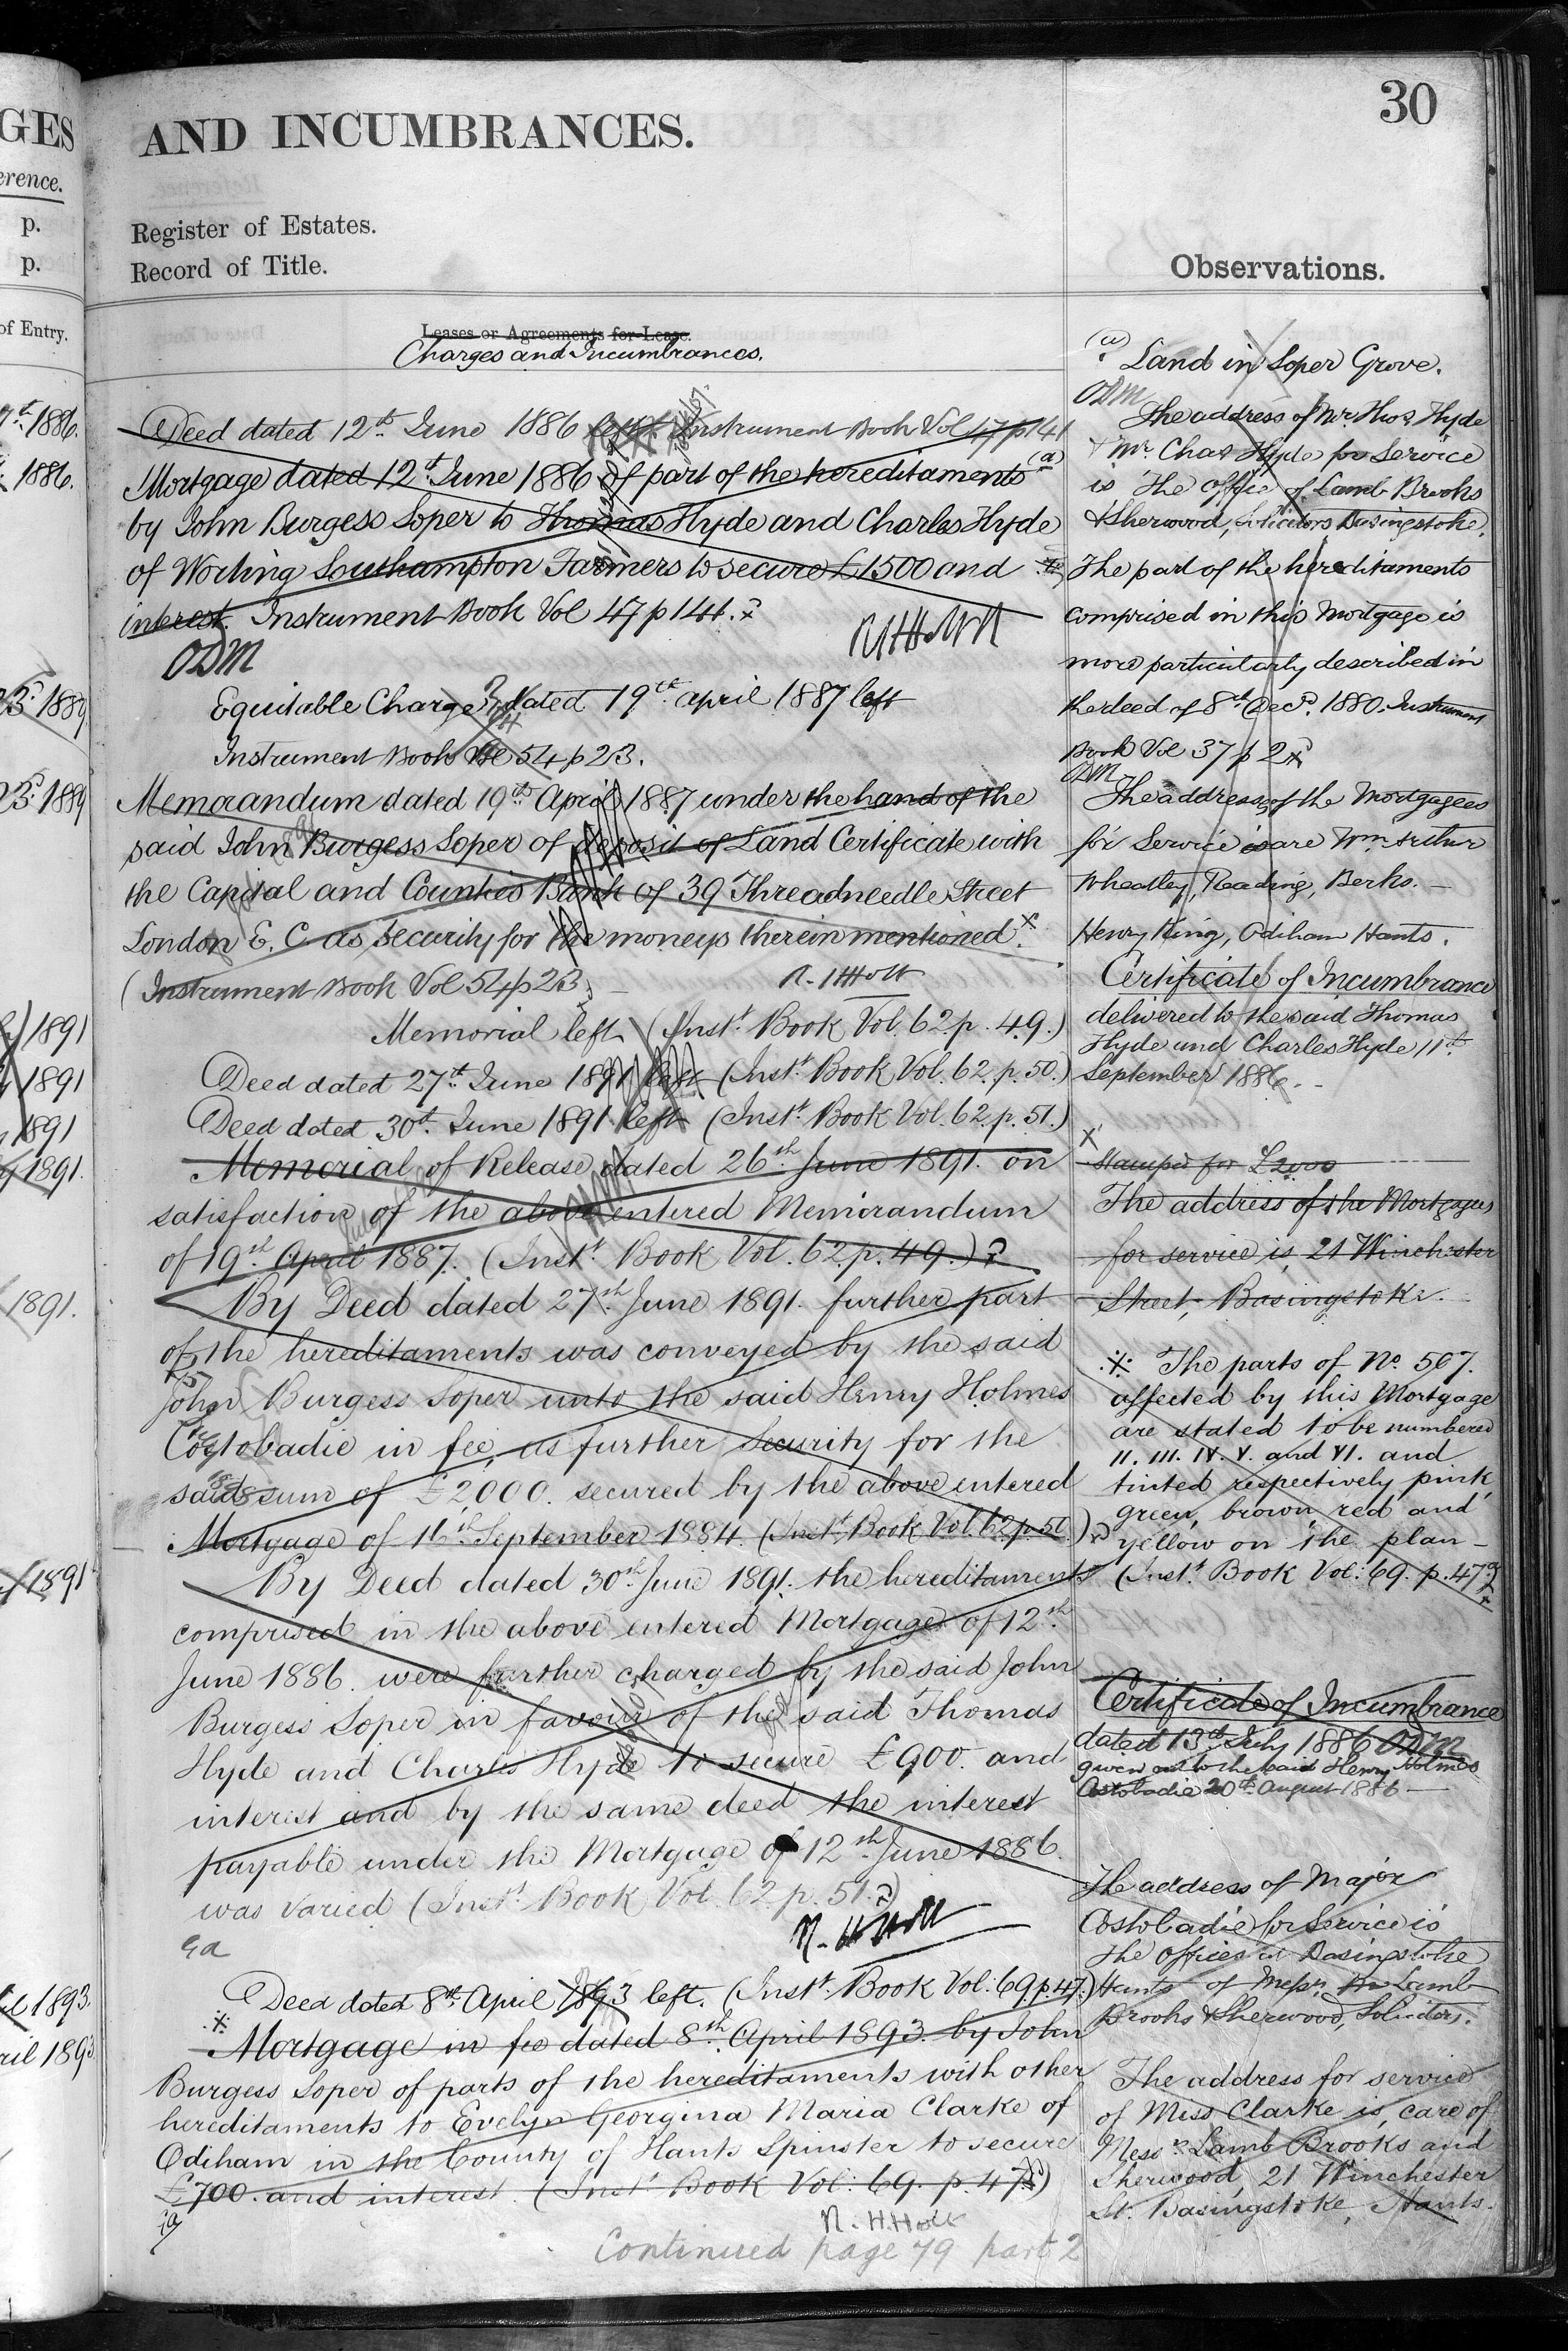 GES
erence.
p.
p.
of Entry.
7th 1886.
1886.
1889
1889
1891
1891
1891
1891.
1891.
1891
1893.
ril 1893
30
AND INCUMBRANCES.
Register of Estates.
Record of Title.
Leases or Agreements for Lease.
Charges and Incumbrances.
Deed dated 12th June 1886 left Instrument Book Vol 47 p 141
Mortgage dated 12th June 1886 of part of the hereditaments (a)
by John Burgess Soper to Thomas Hyde and Charles Hyde
of Worting Southampton Farmers to secure £1500 and
interest. Instrument Book Vol 47 p 141.
ODM
Equitable Charge dated 19th April 1887 left
Instrument Book Vol 54 p 23.
Memorandum dated 19th April 1887 under the hand of the
said John Burgess Soper of deposit of Land Certificate with
the Capital and Counties Bank of 39 Threadneedle Street
London E.C. as security for the moneys therein mentioned x
(Instrument Book Vol 54 p 23)
N. H Holt
Memorial left (Inst. Book Vol. 62. p. 49.)
Deed dated 27th June 1891 left (Inst. Book Vol. 62. p. 50.)
Deed dated 30th June 1891 left (Inst. Book Vol. 62. p. 51.)
Memorial of Release dated 26th June 1891. on
satisfaction of the above entered Memorandum
of 19th April 1887. (Inst. Book Vol. 62. p. 49.)
By Deed dated 27th June 1891. further part
of the hereditaments was conveyed by the said
John Burgess Soper unto the said Henry Holmes
Costobadie in fee, as further security for the
said sum of £2000. secured by the above entered
Mortgage of 16th September 1884. (Inst. Book Vol. 62. p. 50.)
By Deed dated 30th June 1891. the hereditaments
comprised in the above entered Mortgage of 12th
June 1886. were further charged by the said John
Burgess Soper in favour of the said Thomas
Hyde and Charles Hyde to secure £900. and
interest and by the same deed the interest
payable under the Mortgage of 12th June 1886.
was varied (Inst. Book Vol. 62. p. 51.)
N. H Holt
Deed dated 8th April 1893 left. (Inst. Book Vol: 69 p. 47.)
Mortgage in fee dated 8th April 1893. by John
Burgess Soper of parts of the hereditaments with other
hereditaments to Evelyn Georgina Maria Clarke of
Odiham in the County of Hants Spinster to secure
£700. and interest. (Inst. Book Vol: 69. p. 47.)
N. H. Holt
Continued page 79 part 2
Observations.
(a) Land in Soper Grove.
ODM
The address of Mr. Thos. Hyde
& Mr. Chas Hyde for Service
is the office of Lamb Brooks
& Sherwood, Solicitors Basingstoke.
The part of the hereditaments
comprised in this Mortgage is
more particularly described in
the deed of 8th Decr. 1880. Instrument
Book Vol 37 p 2
ODM
The address of the Mortgagees
for Service is are Wm. Arthur
Wheatley, Reading, Berks.
Henry King, Odiham Hants.
Certificate of Incumbrance
delivered to the said Thomas
Hyde and Charles Hyde 11th
September 1886.
x
Stamped for £2000
The address of the Mortgagees
for service is, 21 Winchester
Street, Basingstoke.
The parts of No. 567.
affected by this Mortgage
are stated to be numbered
II. III. IV. V. and VI. and
tinted respectively pink,
green, brown, red and
yellow on the plan
(Inst. Book Vol: 69. p. 47
Certificate of Incumbrance
dated 13th July 1886 ODM
given out to the said Henry Holmes
Costobadie 20th August 1886
The address of Major
Costobadie for Service is
the offices at Basingstoke
Hants of Messrs. Lamb
Brooks & Sherwood, Solicitors.
The address for service
of Miss Clarke is, care of
Messrs. Lamb Brooks and
Sherwood, 21 Winchester
St. Basingstoke, Hants.